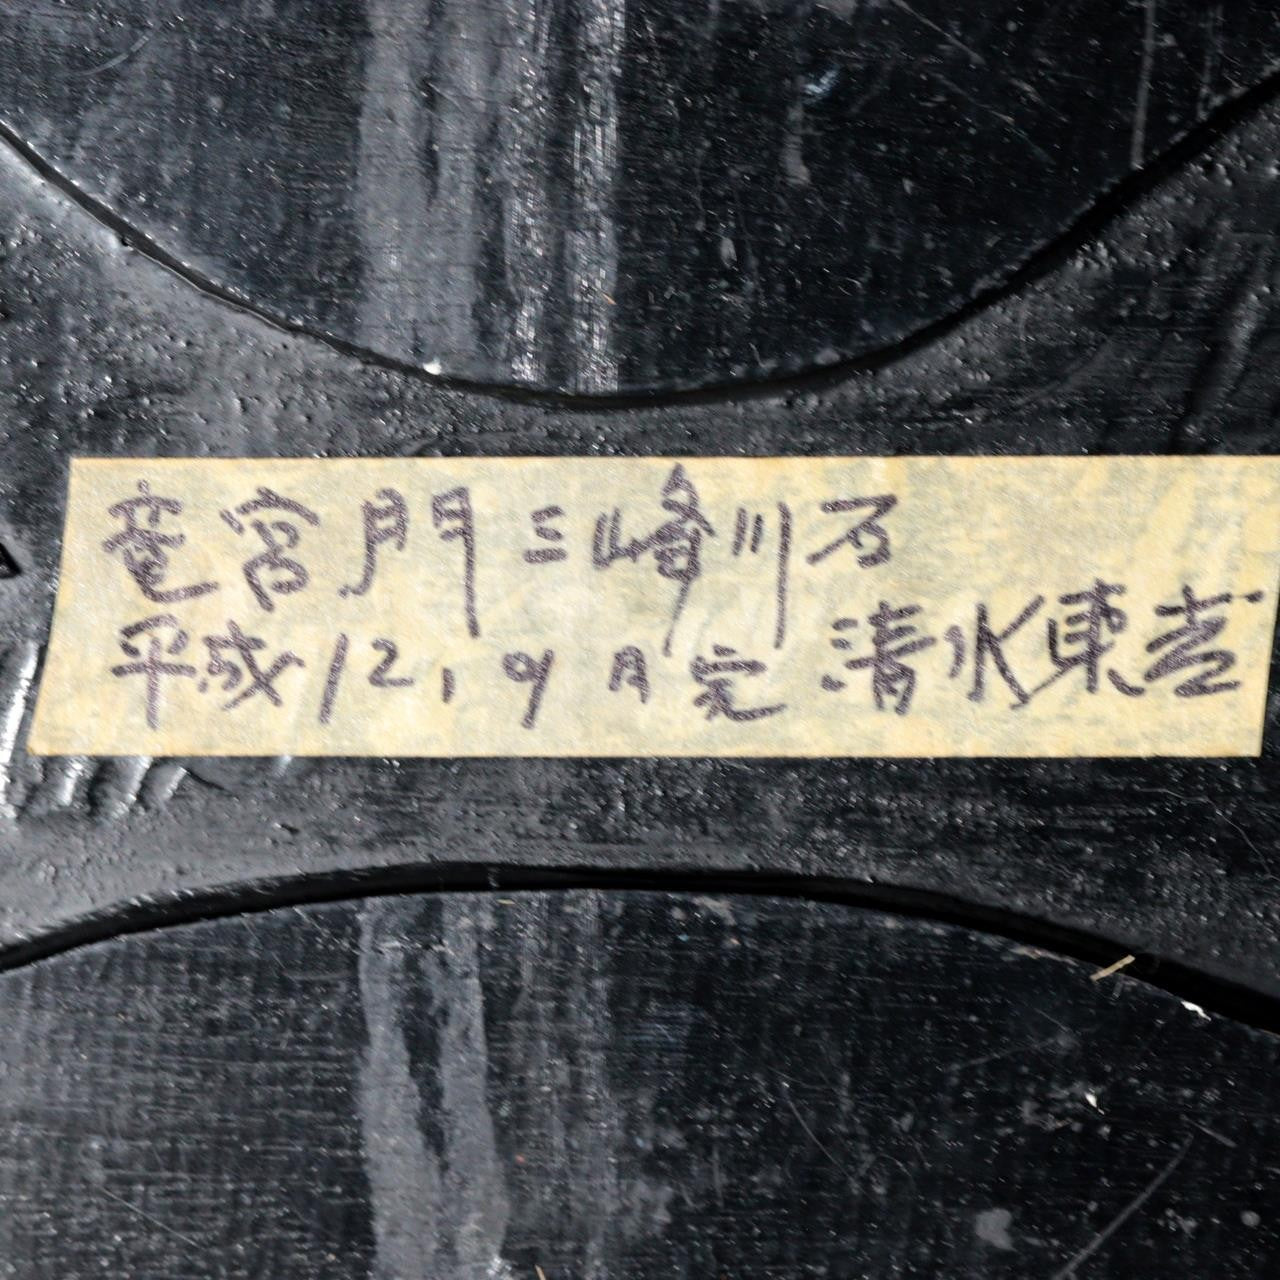 竜宮門 三峰川石
平成12,9月完 清水東吉